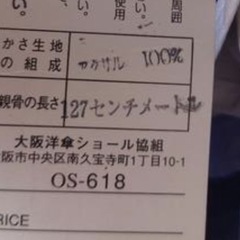 い。
周囲
使用
かさ生地
の組成
100%
親骨の長さ
127センチメートル
大阪洋傘ショール協組
阪市中央区南久宝寺町1丁目10-1
OS-618
RICE